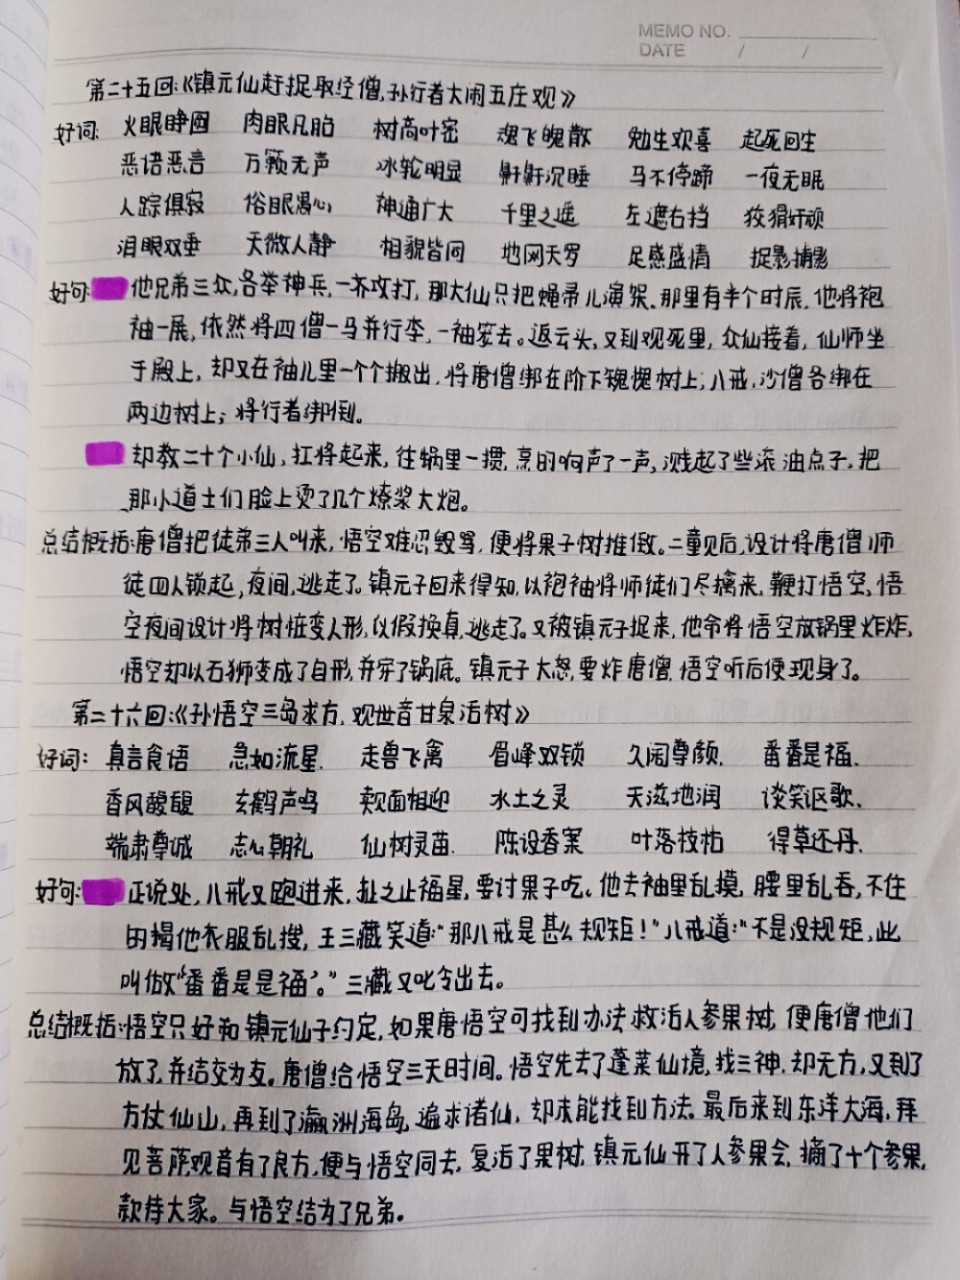 MEMO NO.
DATE / /
第二十五回:《镇元仙赶捉取经僧,孙行者大闹五庄观》
好词: 火眼睁圆 肉眼凡胎 树高叶密 魂飞魄散 勉生欢喜 起死回生
恶语恶言 万颗无声 冰轮明显 鼾鼾沉睡 马不停蹄 一夜无眠
人踪俱寂 俗眼愚心 神通广大 千里之遥 左遮右挡 狡猾奸顽
泪眼双垂 天微人静 相貌皆同 地网天罗 足感盛情 捉影捕影
好句: 他兄弟三众,各举神兵,一齐攻打,那大仙只把蝇帚儿演架、那里有半个时辰,他将袍
袖一展,依然将四僧一马并行李,一袖笼去。返云头,又到观死里,众仙接着,仙师坐
于殿上,却又在袖儿里一个个搬出,将唐僧绑在阶下槐树上;八戒,沙僧各绑在
两边树上;将行者绑倒。
却教二十个小仙,扛将起来,往锅里一掼,烹的响声了一声,溅起了些滚油点子,把
那小道士们脸上烫了几个燎浆大炮。
总结概括:唐僧把徒弟三人叫来,悟空难忍毁骂,便将果子树推倒。二童见后,设计将唐僧师
徒四人锁起,夜间,逃走了。镇元子回来得知,以袍袖将师徒们尽擒来,鞭打悟空,悟
空夜间设计将树桩变人形,以假换真,逃走了。又被镇元子捉来,他命将悟空放锅里炸炸,
悟空却以石狮变成了自形,并穿了锅底。镇元子大怒,要炸唐僧,悟空听后便现身了。
第二十六回:《孙悟空三岛求方,观世音甘泉活树》
好词: 真言食语 急如流星. 走兽飞禽 眉峰双锁 久闻尊颜. 番番是福.
香风馥馥 玄鹤声鸣 觌面相迎 水土之灵 天滋地润 谈笑讴歌.
端肃尊诚 志心朝礼 仙树灵苗. 陈设香案 叶落枝枯 得草还丹.
好句: 正说处,八戒又跑进来,扯之止福星,要讨果子吃。他去袖里乱摸,腰里乱吞,不住
的揭他衣服乱搜,王三藏笑道:“那八戒是甚么规矩!”八戒道:“不是没规矩,此
叫做“番番是是福”。”三藏又叱令出去。
总结概括:悟空只好和镇元仙子约定,如果唐悟空可找到办法救活人参果树,便唐僧他们
放了,并结交为友。唐僧给悟空三天时间。悟空先去了蓬莱仙境,找三神,却无方,又到了
方仗仙山,再到了瀛洲海岛,遍求诸仙,却未能找到方法.最后来到东洋大海,拜
见菩萨,观音有了良方,便与悟空同去,复活了果树,镇元仙开了人参果会,摘了十个参果,
款待大家。与悟空结为了兄弟。